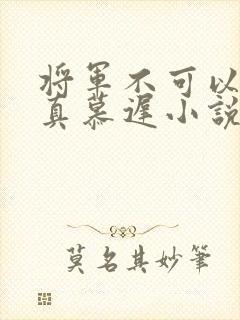 将军不可以
真慕遅小説
莫名其妙筆